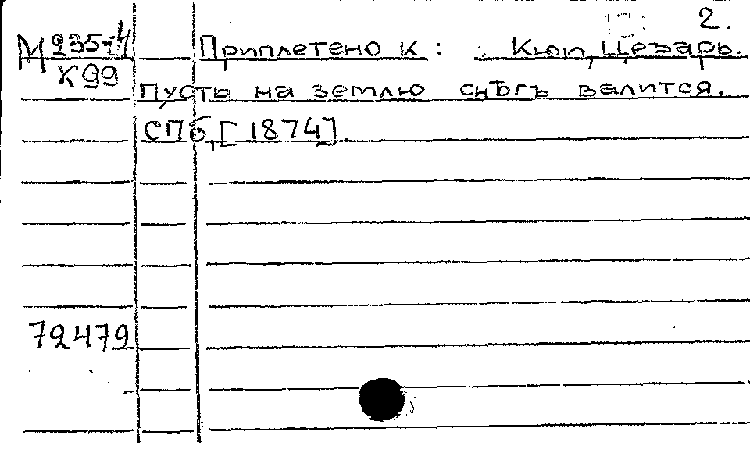 2.
М 935-4 Приплетено к: Кюи, Цезарь.
К99
Пусть на землю снѣгъ валится.
СПб, [1874].
72479